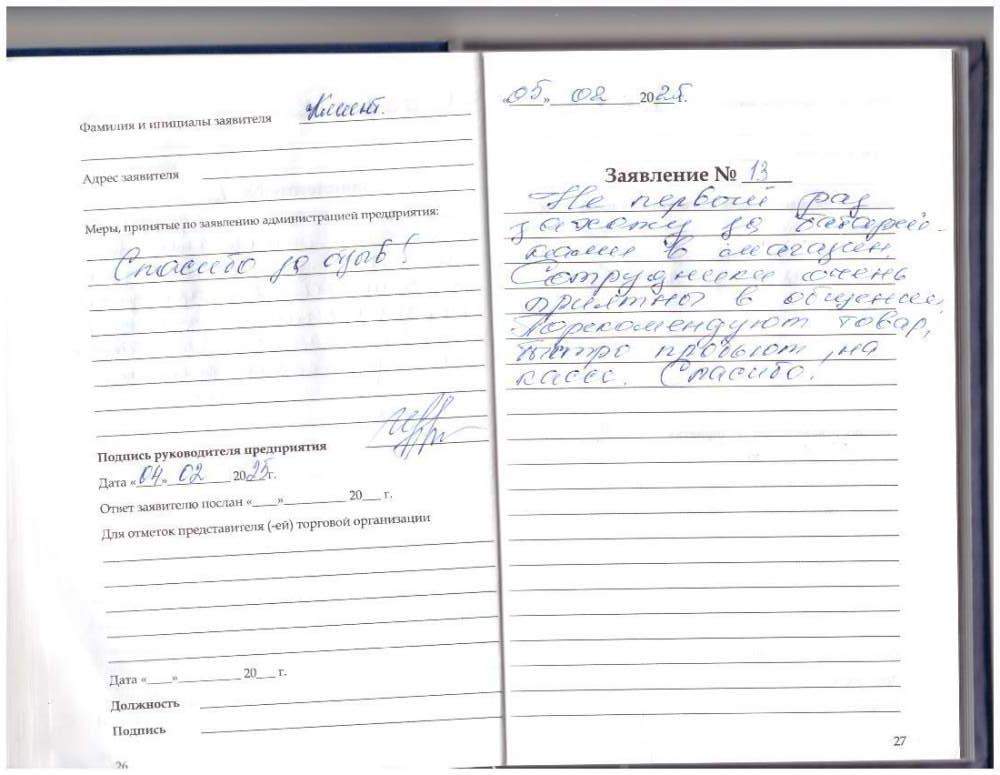 Фамилия и инициалы заявителя Клиент.
Адрес заявителя
Меры, принятые по заявлению администрацией предприятия:
Спасибо за отзыв!
Подпись руководителя предприятия
Дата «04» 02 2025г.
Ответ заявителю послан «___»_________ 20___ г.
Для отметок представителя (-ей) торговой организации
Дата «___»_________ 20___ г.
Должность
Подпись
26
«05» 02 2025г.
Заявление № 13
Не первый раз
захожу за батарей-
ками в магазин.
Сотрудники очень
приятны в общении,
Порекомендуют товар,
быстро пробьют на
кассе. Спасибо!
27